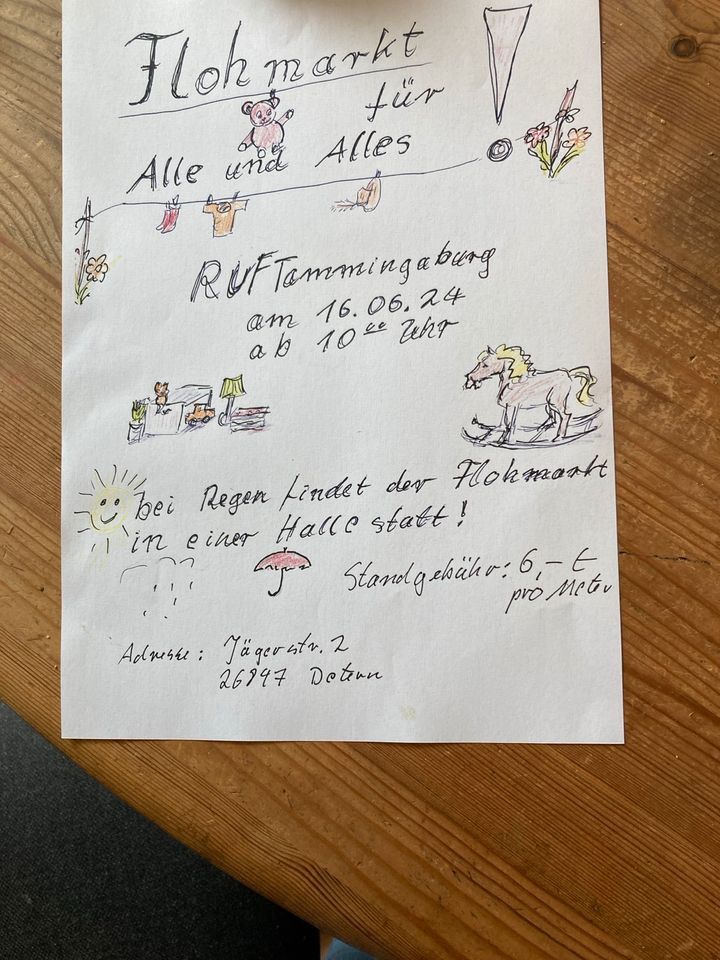 Flohmarkt
für
Alle und Alles !
RUF Tammingaburg
am 16.06.24
ab 10⁰⁰ Uhr
bei Regen findet der Flohmarkt
in einer Halle statt!
Standgebühr: 6,- €
pro Meter
Adresse: Jägerstr. 2
26847 Detern